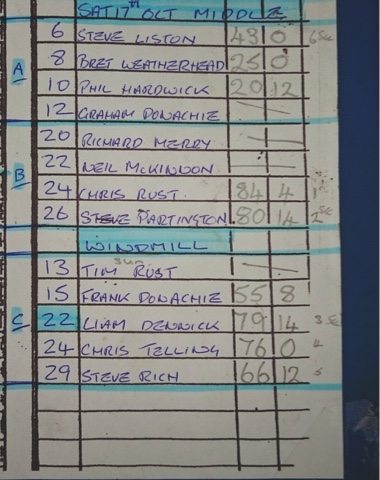 SAT 17th OCT MIDDLE
6 STEVE LISTON 43 0 6
A 8 BRET WEATHERHEAD 25 0
10 PHIL HARDWICK 20 12
12 GRAHAM DONACHIE —
20 RICHARD MERRY —
B 22 NEIL McKINNON
24 CHRIS RUST 84 4 1
26 STEVE MARTINGTON 80 14 2
WINDMILL
13 TIM RUST —
15 FRANK DONACHIE 55 8
C 22 LIAM DENNICK 79 14 3
24 CHRIS TELLING 76 0 4
29 STEVE RICH 66 12 5